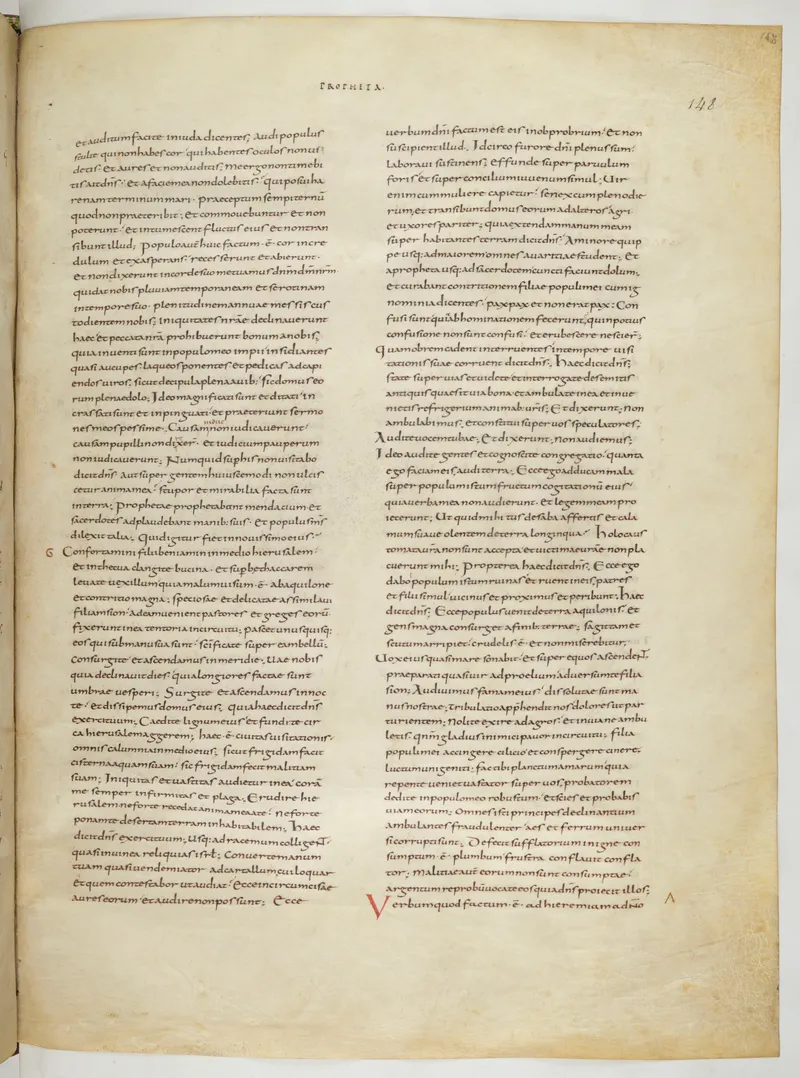 PROPHETA.
148
et auditum facite in iuda dicentes; Audi populus
stulte qui non habes cor· qui habentes oculos non ui
detis· Et aures et non auditis; me ergo non timebi
tis ait dns̄· et a facie mea non dolebitis· qui posui ha
renam terminum mari· praeceptum sempiternū
quod non praeteribit; et commouebuntur et non
poterunt· et intumescent fluctus eius et non tran
sibunt illud; Populo aut̄ huic factum· ē· cor incre
dulum et exasperans· recesserunt et abierunt·
Et non dixerunt in corde suo metuamus dnm̄ dm̄ nrm̄·
qui dat nobis pluuiam temporaneam et serotinam
in tempore suo· plenitudinem annuae messis cus
todientem nobis; iniquitates nrāe declinauerunt
haec· et peccata nrā prohibuerunt bonum a nobis;
quia inuenti sunt in populo meo impii insidiantes
quasi aucupes· laqueos ponentes et pedicas ad capi
endos uiros; sicut decipula plena auib; sic domus eo
rum plenae dolo; Ideo magnificati sunt et ditati· in
crassati sunt et inpinguati· et praeterierunt sermo
nes meos pessime· Causam non iudicauerunt·
causam pupilli non dixer̄· et iudicium pauperum
non iudicauerunt; Numquid sup his non uisitabo
dicit dns̄· Aut super gentem huiuscemodi non ulcis
cetur anima mea· stupor et mirabilia facta sunt
in terra; Prophetae prophetabant mendacium et
sacerdotes adplaudebant manib; suis· et populus ms̄
dilexit talia; Quid igitur fiet in nouissimo eius·
Confortamini filii beniamin in medio hierusalem·
et in thecua clangite bucina· et sup bethaccarem
leuate uexillum quia malum uisum· ē· ab aquilone
et contritio magna; speciosae et delicatae assimilaui
filiam sion· ad eam uenient pastores et greges eorū
fixerunt in ea tentoria in circuitu; pascet unusquisq;
eos qui sub manu sua sunt· sc̄ificate super eam bellū;
Consurgite et ascendamus in meridie; Uae nobis
quia declinauit dies· quia longiores factae sunt
umbrae uesperi; Surgite et ascendamus in noc
te· et dissipemus domus eius; quia haec dicit dns̄
exercituum; Caedite lignum eius et fundite cir
ca hierusalem aggerem; haec· ē· ciuitas uisitationis·
omnis calumnia in medio eius; sicut frigidam facit
cisterna aquam suam· sic frigidam fecit malitiam
suam; Iniquitas et uastitas audietur in ea· corā
me semper infirmitas et plaga; Erudire hie
rusalem ne forte recedat anima mea a te· ne forte
ponam te desertam terram inhabitabilem; Haec
dicit dns̄ exercituum; Usq; ad racemum colligent·
quasi in uinea reliquias isrl̄; Conuerte manum
tuam quasi uindemiator ad cartallum; cui loquar
et quem contestabor ut audiat· Ecce incircumcisae
aures eorum· et audire non possunt; Ecce
uerbum dn̄i factum est eis in obprobrium· Et non
suscipient illud; Idcirco furore dn̄i plenus sum·
laboraui sustinens; effunde super paruulum
foris et super concilium iuuenum simul; Uir
enim cum muliere capietur· senex cum pleno die
rum; et transibunt domus eorum ad alteros· agri
et uxores pariter; quia extendam manum meam
super habitantes terram dicit dns̄· A minore quip
pe usq; ad maiorem omnes auaritiae student; Et
a propheta usq; ad sacerdotem cuncti faciunt dolum;
et curabant contritionem filiae populi mei cum ig
nominia dicentes· pax pax et non erat pax; Con
fusi sunt quia abhominationem fecerunt; quin potius
confusione non sunt confusi· et erubescere nescier̄;
Quam ob rem cadent inter ruentes in tempore uisi
tationis suae corruent dicit dns̄; Haec dicit dns̄;
state super uias et uidete et interrogate de semitis
antiquis quae sit uia bona et ambulate in ea et inue
nietis refrigerium animab; urīs; Et dixerunt; non
ambulabimus; et constitui super uos speculatores;
Audite uocem tubae; Et dixerunt; non audiemus;
Ideo audite gentes et cognoscite congregatio· quanta
ego faciam eis audi terra; Ecce ego adducam mala
super populum istum fructum cogitationū eius·
quia uerba mea non audierunt· et legem meam pro
iecerunt; Ut quid mihi tus de saba affertis et cala
mum suaue olentem de terra longinqua· Holocaus
tomata urā non sunt accepta et uictimae urāe non pla
cuerunt mihi; Propterea haec dicit dns̄; Ecce ego
dabo populum istum ruinas et ruent in eis patres
et filii simul uicinus et proximus et peribunt; Haec
dicit dns̄; Ecce populus uenit de terra aquilonis· et
gens magna consurget a finib; terrae; sagittam et
scutum arripiet· crudelis· ē· et non miserebitur;
Uox eius quasi mare sonabit· et super equos ascendent·
praeparati quasi uir ad proelium aduersum te filia
sion; Audiuimus famam eius· dissolutae sunt ma
nus nostrae; tribulatio apphendit nos dolores ut par
turientem; Nolite exire ad agros· et in uia ne ambu
letis· qnm̄ gladius inimici pauor in circuitu; filia
populi mei accingere cilicio et conspergere cinere;
luctum unigeniti; fac tibi planctum amarum quia
repente ueniet uastator super uos; probatorem
dedi te in populo meo robustum· et scies et probabis
uiam eorum; Omnes isti principes declinantium
ambulantes fraudulenter· aes et ferrum uniuer
si corrupti sunt; Defecit sufflatorium in igne con
sumptum· ē· plumbum· frustra conflauit confla
tor; malitiae aut̄ eorum non sunt consumptae·
argentum reprobū uocate eos quia dns̄ proiecit illos;
Verbum quod factum· ē· ad hieremiam a dn̄o